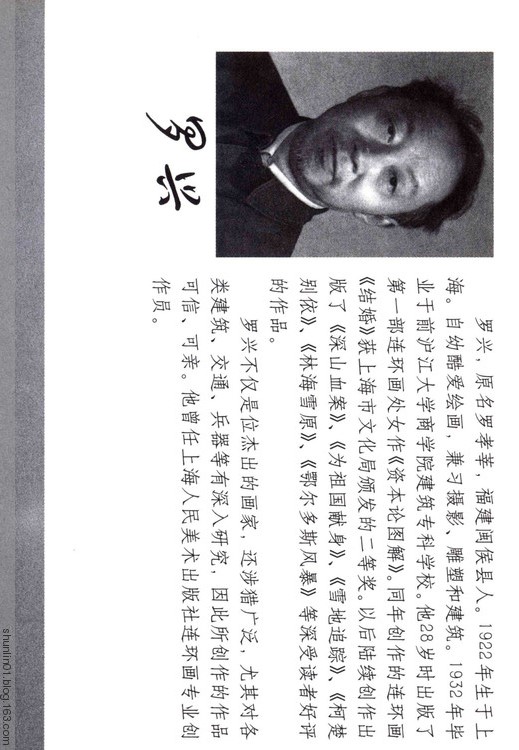 罗兴
罗兴，原名罗孝莘，福建闽侯县人。1922年生于上
海。自幼酷爱绘画，兼习摄影、雕塑和建筑。1932年毕
业于前沪江大学商学院建筑专科学校。他28岁时出版了
第一部连环画处女作《资本论图解》。同年创作的连环画
《结婚》获上海市文化局颁发的二等奖。以后陆续创作出
版了《深山血案》、《为祖国献身》、《雪地追踪》、《柯楚
别依》、《林海雪原》、《鄂尔多斯风暴》等深受读者好评
的作品。
罗兴不仅是位杰出的画家，还涉猎广泛，尤其对各
类建筑、交通、兵器等有深入研究，因此所创作的作品
可信、可亲。他曾任上海人民美术出版社连环画专业创
作员。
shunlin01.blog.163.com